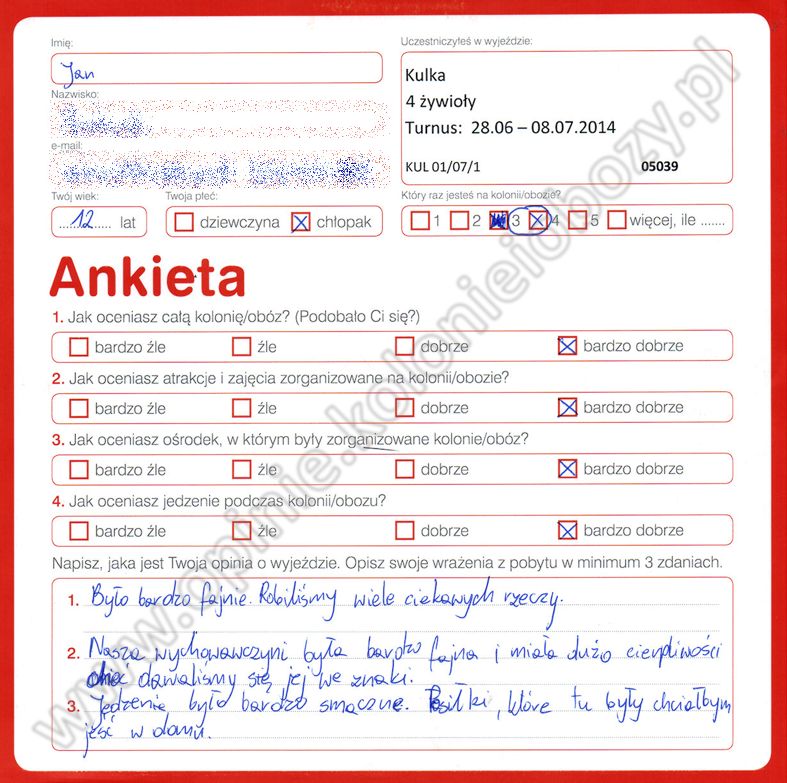 Imię:
Jan
Nazwisko:
e-mail:
Twój wiek:
12 lat
Twoja płeć:
dziewczyna chłopak
Uczestniczyłeś w wyjeździe:
Kulka
4 żywioły
Turnus: 28.06 – 08.07.2014
KUL 01/07/1 05039
Który raz jesteś na kolonii/obozie?
1 2 3 4 5 więcej, ile .......
Ankieta
1. Jak oceniasz całą kolonię/obóz? (Podobało Ci się?)
bardzo źle źle dobrze bardzo dobrze
2. Jak oceniasz atrakcje i zajęcia zorganizowane na kolonii/obozie?
bardzo źle źle dobrze bardzo dobrze
3. Jak oceniasz ośrodek, w którym były zorganizowane kolonie/obóz?
bardzo źle źle dobrze bardzo dobrze
4. Jak oceniasz jedzenie podczas kolonii/obozu?
bardzo źle źle dobrze bardzo dobrze
Napisz, jaka jest Twoja opinia o wyjeździe. Opisz swoje wrażenia z pobytu w minimum 3 zdaniach.
1. Było bardzo fajnie. Robiliśmy wiele ciekawych rzeczy.
2. Nasza wychowawczyni była bardzo fajna i miała dużo cierpliwości
dawaliśmy się jej we znaki.
3. Jedzenie było bardzo smaczne. Posiłki, które tu były chciałbym
jeść w domu.
www.opinie.kolonieiobozy.pl